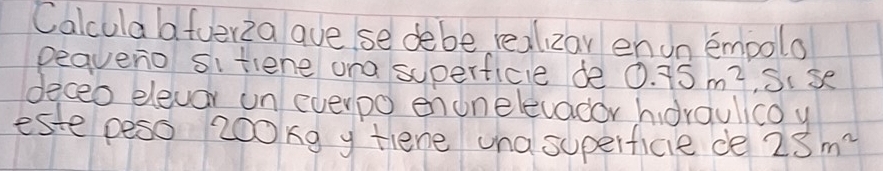 Calcula la fuerza que se debe realizar en un émbolo
pequeño si tiene una superficie de 0.75 m², si se
deceo elevar un cuerpo en un elevador hidraulico y
este peso 200 Kg y tiene una superficie de 25 m²